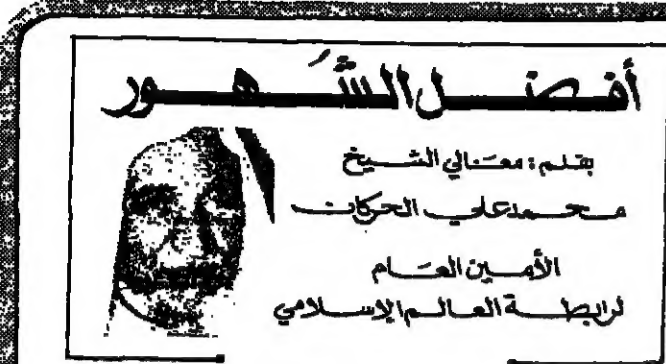 أفضل الشُهور
بقلم: معالي الشيخ
محمد علي الحركان
الأمين العام
لرابطة العالم الإسلامي